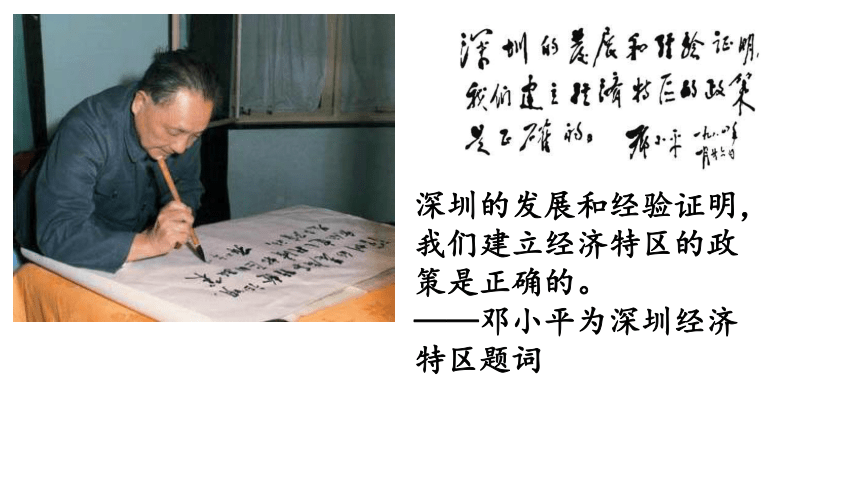 深圳的发展和经验证明，
我们建立经济特区的政策
是正确的。 邓小平 一九八四年
一月廿六日
深圳的发展和经验证明，
我们建立经济特区的政
策是正确的。
——邓小平为深圳经济
特区题词